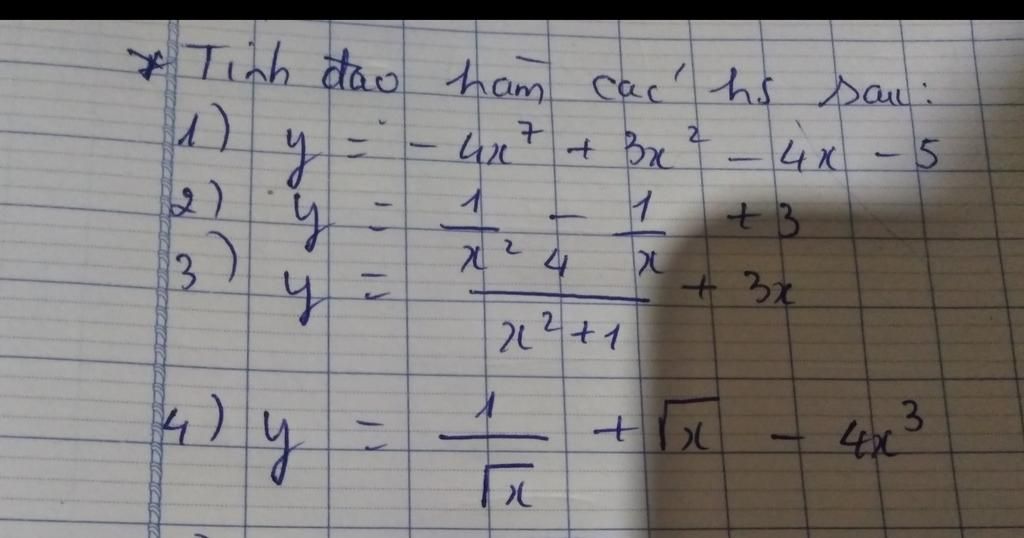 * Tính đạo hàm các hs sau:
1) y = - 4x⁷ + 3x² - 4x - 5
2) y = 1/x² - 1/x + 3
3) y = 4/(x² + 1) + 3x
4) y = 1/√x + √x - 4x³